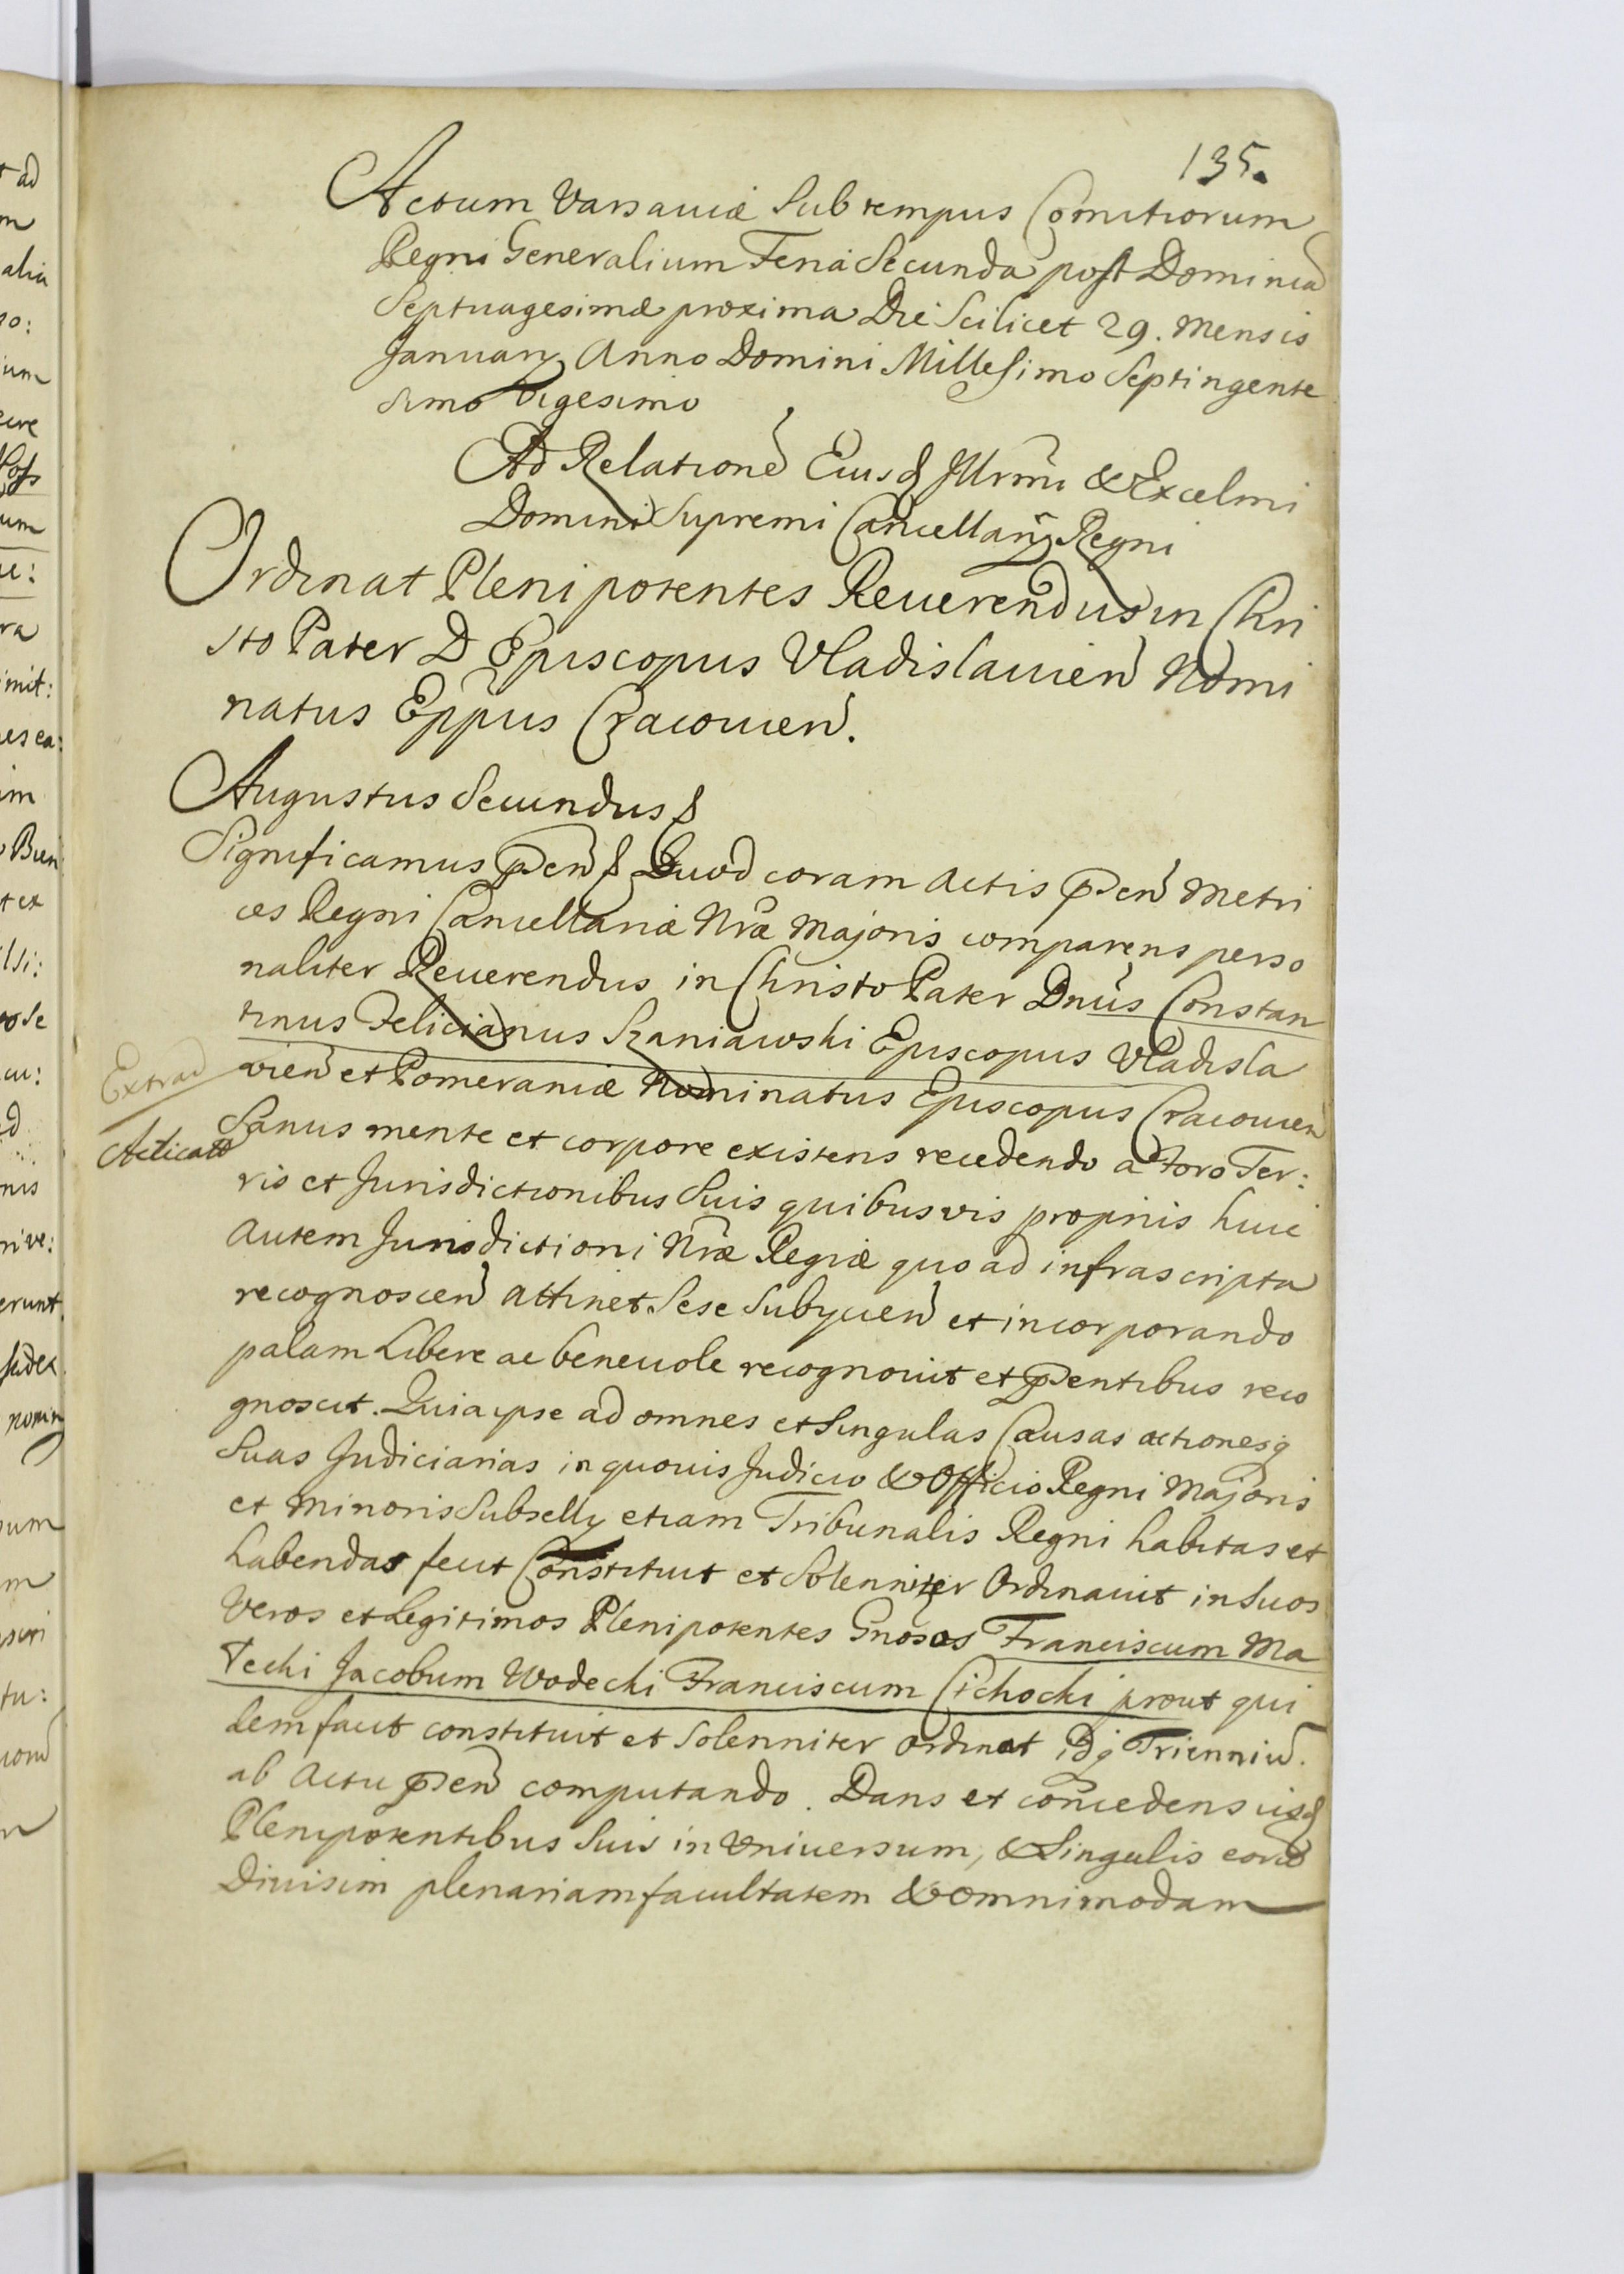 135.
Actum Varsaviæ Sub tempus Comitiorum
Regni Generalium Feria Secunda post Dominicã
Septuagesimæ proxima Die Scilicet 29. Mensis
Januarij Anno Domini Millesimo Septingente
simo Vigesimo
Ad Relationẽ Eiusd Illrmi & Excelmi
Domini Supremi Cancellarij Regni
Ordinat Plenipotentes Reuerendus in Chri
sto Pater D Episcopus Vladislauien̄ Nomi
natus Eppus Cracouien̄.
Augustus Secundus
Significamus pn̄ Quod coram Actis pn̄ Metri
ces Regni Cancellariæ Nr̄æ Majoris comparens perso
naliter Reuerendus in Christo Pater Dnus Constan
tinus Felicianus Szaniawski Episcopus Vladisla
vien̄ et Pomeraniæ Nominatus Episcopus Cracouien̄
Extrad
Sanus mente et corpore existens recedendo a Foro Ter:
Acticato
ris et Jurisdictionibus Suis quibusvis proprijs huic
Autem Jurisdictioni Nr̄æ Regiæ quo ad infrascripta
recognoscen̄ attinet Sese Subijcien̄ et incorporando
palam Libere ac beneuole recognouit et pn̄tibus reco
gnoscit. Quia ipse ad omnes et Singulas Causas actionesq
Suas Judiciarias in quouis Judicio & Officio Regni Majoris
et Minoris Subsellij etiam Tribunalis Regni habitas et
habendas fecit Constituit et Solenniter Ordinauit in Suos
Veros et Legitimos Plenipotentes Gnosos Franciscum Ma
Tecki Jacobum Wodecki Franciscum Cichocki prout qui
dem facit constituit et Solenniter Ordinat idq Trienniũ.
ab Actu pn̄ computando. Dans et concedens ijsd
Plenipotentibus Suis in Vniuersum, & Singulis eorũ
Diuisim plenariam facultatem & omnimodam